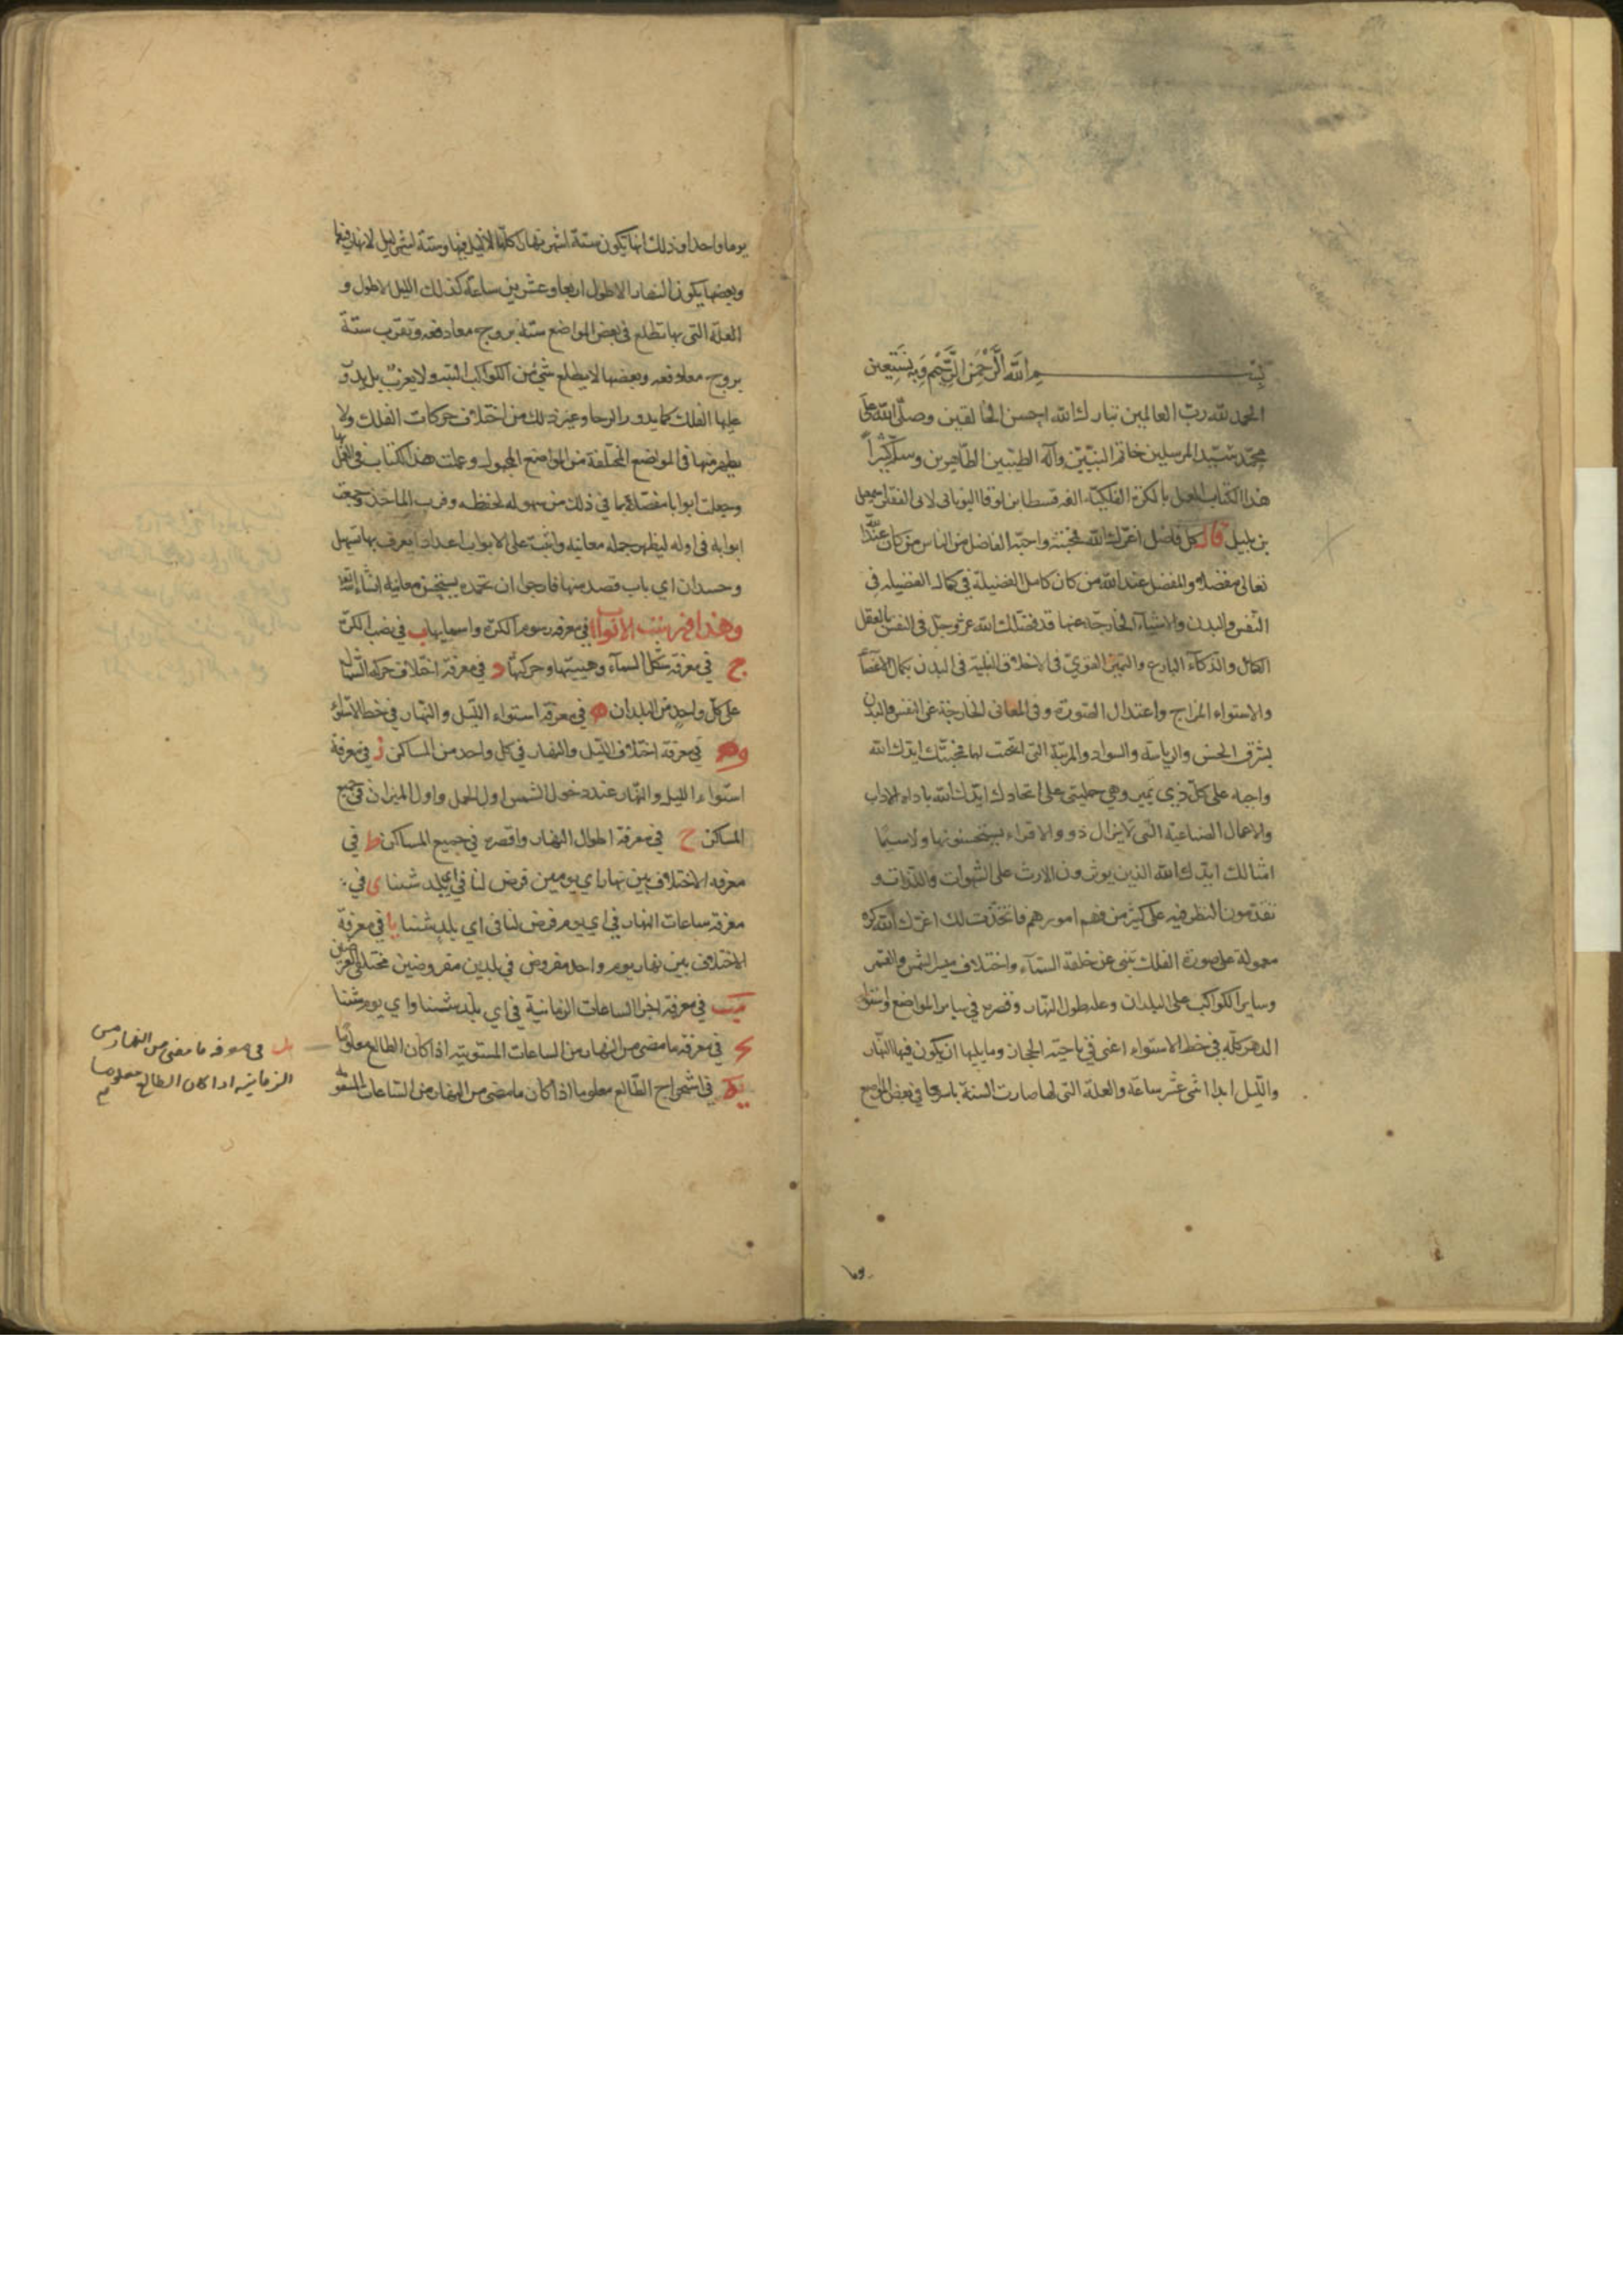 بسم الله الرحمن الرحيم وبه نستعين
الحمد لله رب العالمين تبارك الله احسن الخالقين وصلى الله على
محمد سيد المرسلين خاتم النبيين وآله الطيبين الطاهرين وسلم كثيرا
هذا الكتاب العمل بالكرة الفلكية الفه قسطا بن لوقا اليوناني لابي الصقر اسمعيل
بن بلبل قال كل فاضل اعزك الله محبته واحبه الفاضل من الناس من كان عند الله
تعالى مفضلا والمفضل عند الله من كان كامل الفضيلة في كمال الفضيلة في
النفس والبدن والاشياء الخارجة عنها قد فضلك الله عز وجل في النفس بالعقل
الكامل والذكاء البارع والتميز القوي في الاخلاق النبيلة في البدن بكمال الاعضا
والاستواء المزاج واعتدال الصورة وفي المعاني الخارجة عن النفس والبدن
بشرف الجنس والرياسة والسواد والمرتبة التي اتحت لها محبتك ايدك الله
واجبة على كل ذي تميز وهي حملتني على اتحادك ايدك الله باداه الاداب
والاعمال الصناعية التي لا يزال ذوو الاقراء يستحسنونها ولاسيما
امثالك ايدك الله الذين يوثرون الارث على الشهوات واللذات و
تقدمون النظر فيه على كثير من فهم امورهم فاتخذت لك اعزك الله كرة
معمولة على صورة الفلك تنبى عن خلقة السماء واختلاف مسير الشمس والقمر
وساير الكواكب على البلدان وعلة طول النهار وقصره في ساير المواضع واستوا
الدهر كله في خط الاستواء اعني في ناحية الحجاز وما يليها ان يكون فيها النهار
والليل ابدا اثنى عشر ساعة والعلة التي لها صارت السنة باسرها في بعض المواضع
يوما واحدا وذلك انها يكون ستة اشهر نهارا كلها لا ليل فيها وستة اشهر ليل لا نهار فيها
وبعضها يكون النهار الاطول اربعا وعشرين ساعة كذلك الليل الاطول و
العلة التي بها تطلع في بعض المواضع ستة بروج معا دفعة وتغرب ستة
بروج معا دفعة وبعضها لا يطلع شيء من الكواكب البتة ولا يغرب بل يدور
عليها الفلك كما يدور الرحا وغير ذلك من اختلاف حركات الفلك ولا
يظهر منها في المواضع المختلفة من المواضع المجهول وعملت هذا الكتاب في العمل بها
وجعلت ابوابا مفصلة بما في ذلك من سهولة لحفظه وقرب الماخذ وجمعت
ابوابه في اوله ليظهر جملة معانيه واثبت على الابواب اعدادا يعرف بها تسهل
وحسدان اي باب قصد منها فارجو ان تحمده يستحسن معانيه انشاء الله
وهذا فهرست الابواب ا في معرفة رسوم الكرة واسمايها ب في نصب الكرة
ج في معرفة شكل السماء وهيئتها وحركتها د في معرفة اختلاف حركة الشمال
على كل واحد من البلدان ه في معرفة استواء الليل والنهار في خط الاستواء
و في معرفة اختلاف الليل والنهار في كل واحد من المساكن ز في معرفة
استواء الليل والنهار عند دخول الشمس اول الحمل واول الميزان في جميع
المساكن ح في معرفة اطوال النهار واقصره في جميع المساكن ط في
معرفة الاختلاف بين نهار اي يومين فرض لنا في اي بلد شئنا ى في
معرفة ساعات النهار في اي يوم فرض لنا في اي بلد شئنا يا في معرفة
الاختلاف بين نهار يوم واحد مفروض في بلدين مفروضين مختلفي العرضين
يب في معرفة اجزا الساعات الزمانية في اي بلد شئنا واي يوم شئنا
يج في معرفة ما مضى من النهار من الساعات المستوية اذا كان الطالع معلوما
يد في معرفة ما مضى من النهار من
الزمانية اذا كان الطالع معلوما
يه في استخراج الطالع معلوما اذا كان ما مضى من النهار من الساعات المستوية
يوما